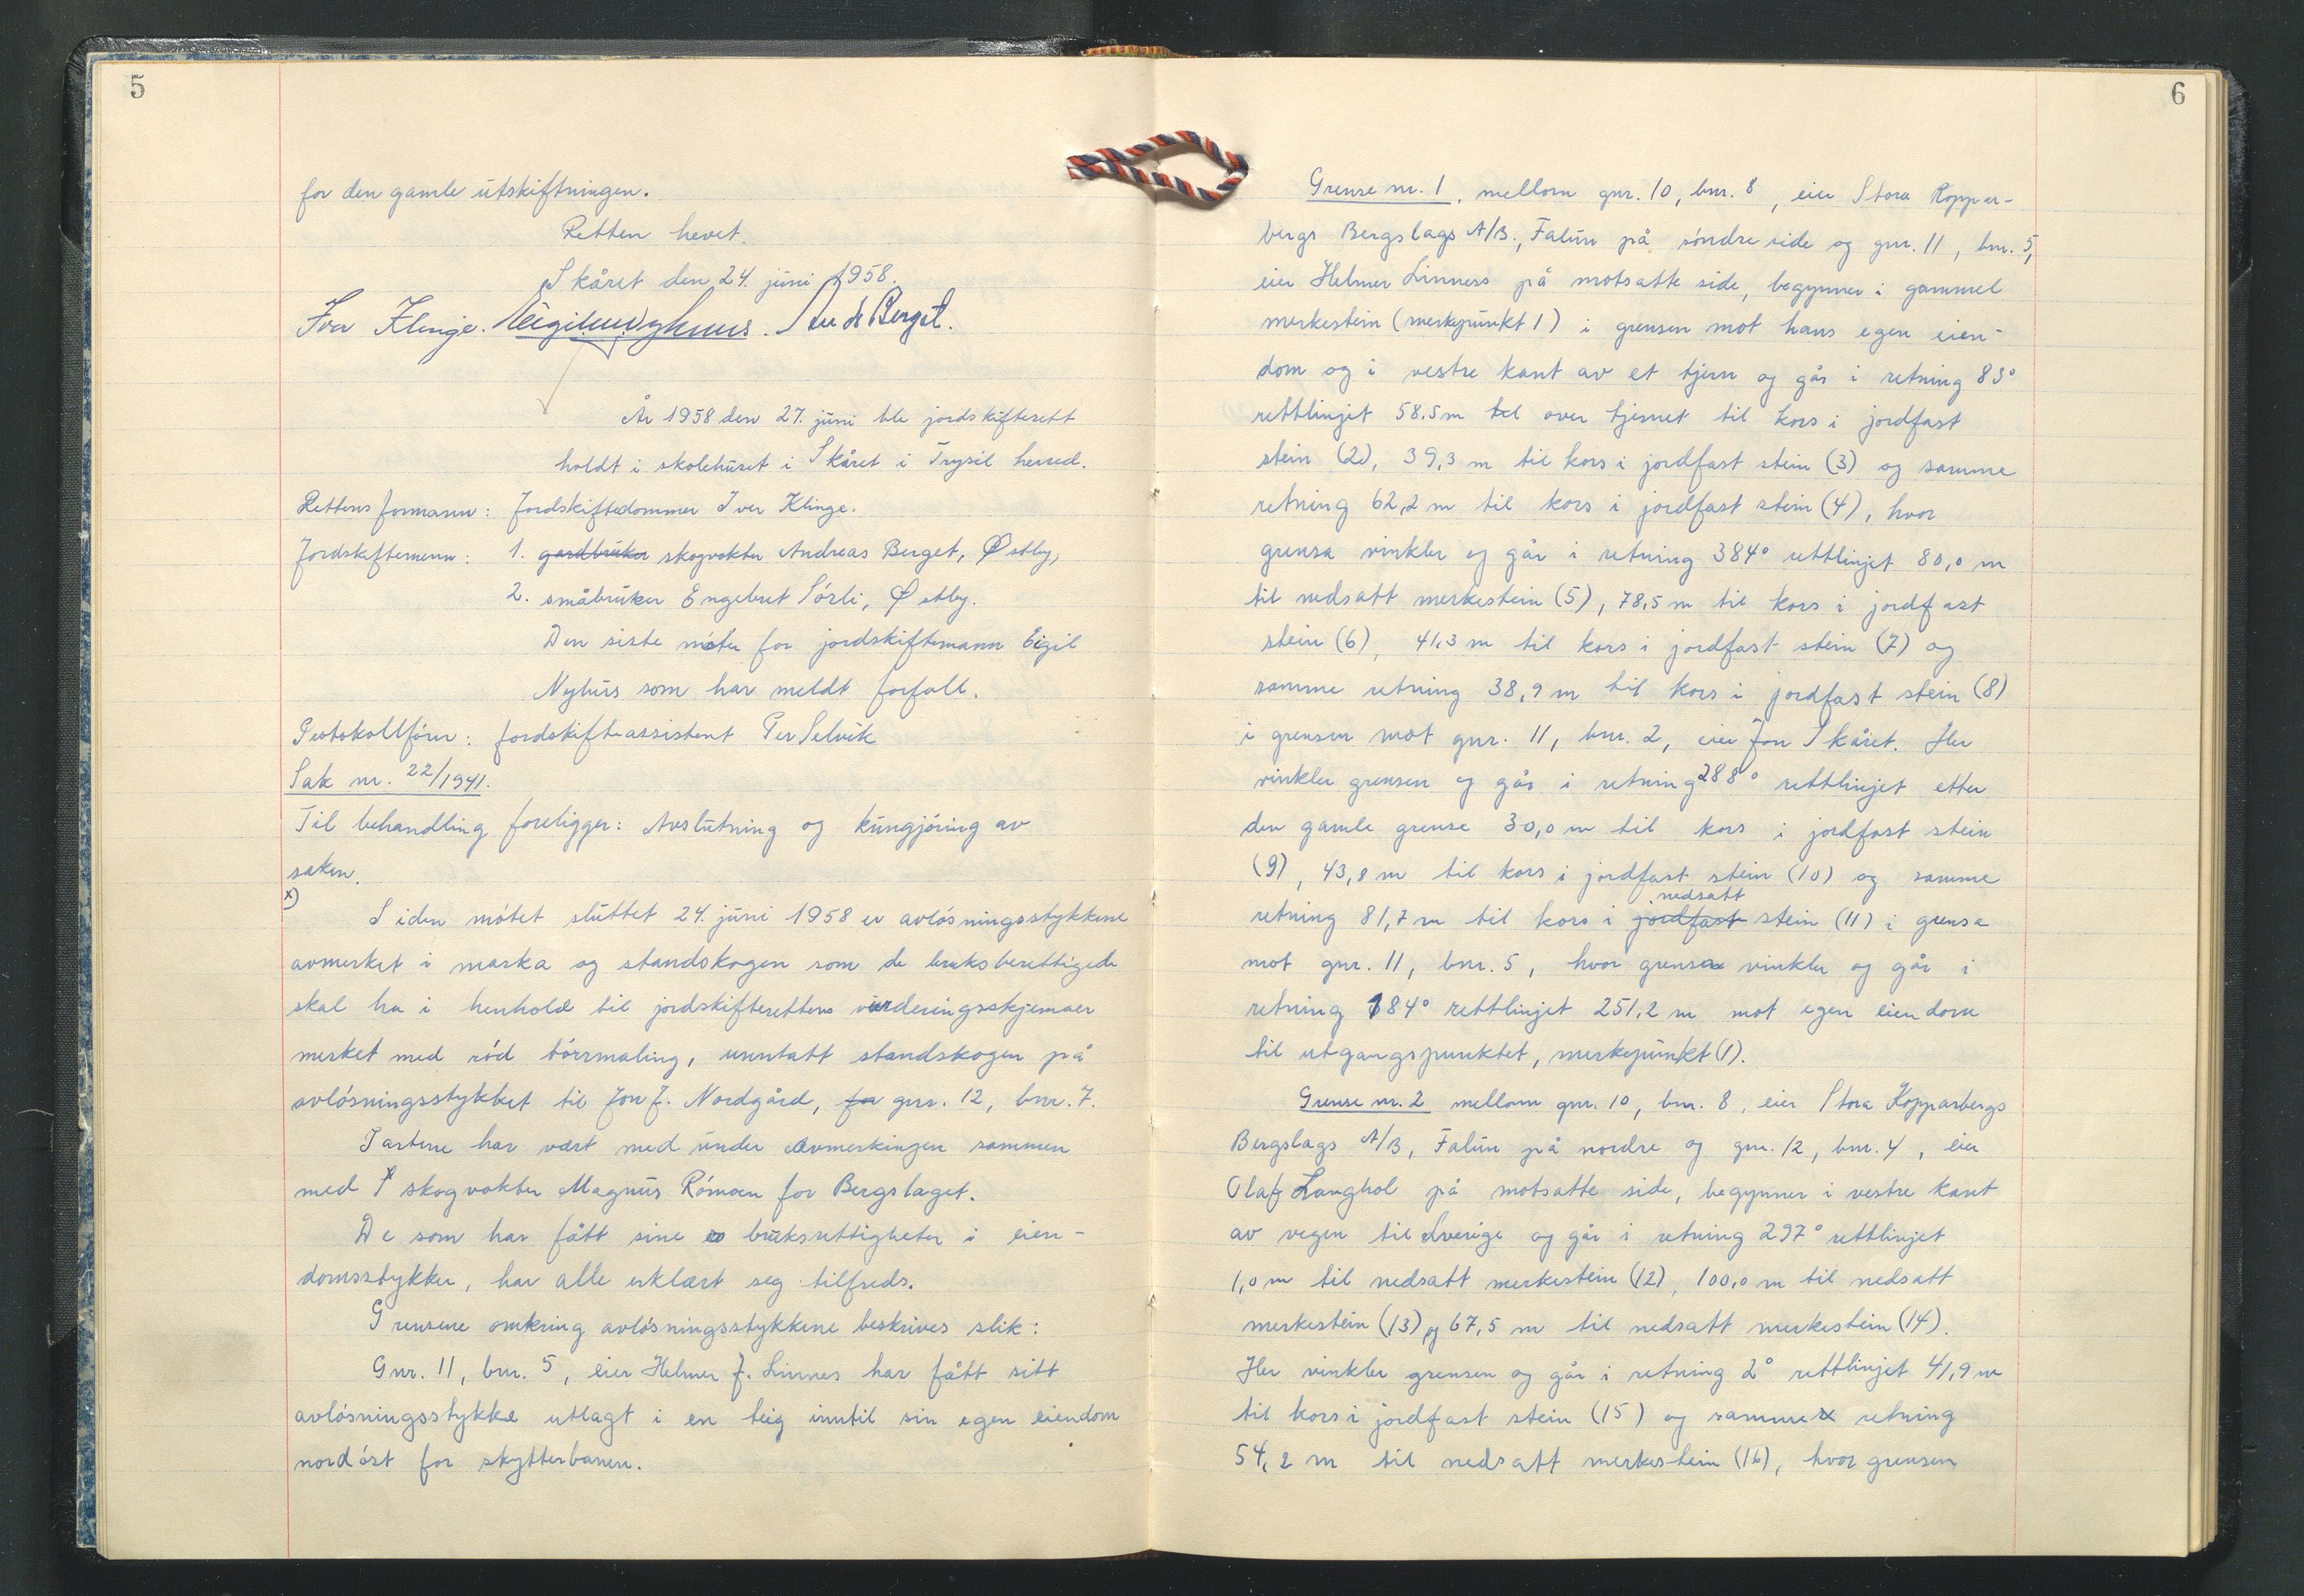 5
for den gamle utskiftningen.
Retten hevet.
Skåret den 24. juni 1958.
Iver Klinge. Eigil Nyhuus. Andr. Berget.
År 1958 den 27. juni ble jordskifterett
holdt i skolehuset i Skåret i Trysil herred.
Rettens formann: Jordskiftedommer Iver Klinge.
Jordskiftemenn: 1. gardbruker skogvokter Andreas Berget, Østby,
2. småbruker Engebret Sørli, Østby.
Den siste møter for jordskiftemann Eigil
Nyhus som har meldt forfall.
Protokollfører: Jordskifteassistent Per Selvik
Sak nr. 22/1941.
Til behandling foreligger: Avslutning og kungjøring av
saken.
x)
Siden møtet sluttet 24. juni 1958 er avløsningsstykkene
avmerket i marka og standskogen som de bruksberettigede
skal ha i henhold til jordskifterettens vurderingsskjemaer
merket med rød tørrmaling, unntatt standskogen på
avløsningsstykket til Jon J. Nordgård, for gnr. 12, bnr. 7.
Partene har vært med under avmerkingen sammen
med skogvokter Magnus Rømoen for Bergslaget.
De som har fått sine bruksrettigheter i eien-
domsstykker, har alle erklært seg tilfreds.
Grensene omkring avløsningsstykkene beskrives slik:
Gnr. 11, bnr. 5, eier Helmer J. Linnes har fått sitt
avløsningsstykke utlagt i en teig inntil sin egen eiendom
nordøst for skytterbanen.
6
Grense nr. 1, mellom gnr. 10, bnr. 8, eier Stora Koppar-
bergs Bergslags A/B., Falun på søndre side og gnr. 11, bnr. 5,
eier Helmer Linnes på motsatte side, begynner i gammel
merkestein (merkepunkt 1) i grensen mot hans egen eien-
dom og i vestre kant av et tjern og går i retning 83°
rettlinjet 58,5 m tel over tjernet til kors i jordfast
stein (2), 39,3 m til kors i jordfast stein (3) og samme
retning 62,2 m til kors i jordfast stein (4), hvor
grensa vinkler og går i retning 384° rettlinjet 80,0 m
til nedsatt merkestein (5), 78,5 m til kors i jordfast
stein (6), 41,3 m til kors i jordfast stein (7) og
samme retning 38,9 m til kors i jordfast stein (8)
i grensen mot gnr. 11, bnr. 2, eier Jon Skåret. Her
vinkler grensen og går i retning 288° rettlinjet etter
den gamle grense 30,0 m til kors i jordfast stein
(9), 43,8 m til kors i jordfast stein (10) og samme
nedsatt
retning 81,7 m til kors i jordfast stein (11) i grensa
mot gnr. 11, bnr. 5, hvor grensa vinkler og går i
retning 184° rettlinjet 251,2 m mot egen eiendom
til utgangspunktet, merkepunkt (1).
Grense nr. 2 mellom gnr. 10, bnr. 8, eier Stora Kopparbergs
Bergslags A/B, Falun på nordre og gnr. 12, bnr. 4, eier
Olaf Langhol på motsatte side, begynner i vestre kant
av vegen til Sverige og går i retning 297° rettlinjet
1,0 m til nedsatt merkestein (12), 100,0 m til nedsatt
merkestein (13) og 67,5 m til nedsatt merkestein (14).
Her vinkler grensen og går i retning 2° rettlinjet 41,9 m
til kors i jordfast stein (15) og samme retning
54,2 m til nedsatt merkestein (16), hvor grensen